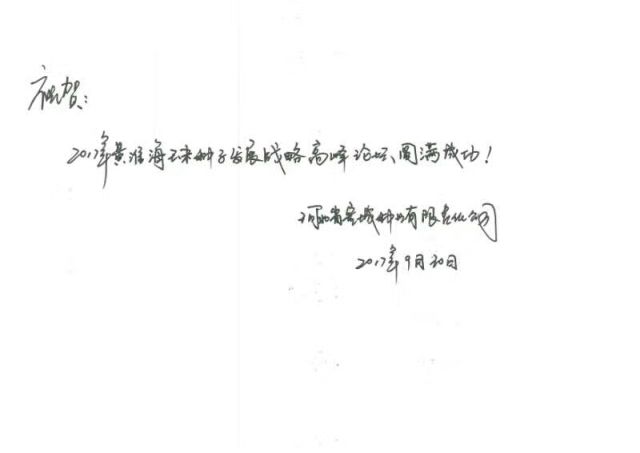 祝贺：
2017年黄淮海玉米种子发展战略高峰论坛、圆满成功！
河北省宽城种业有限责任公司
2017年9月30日